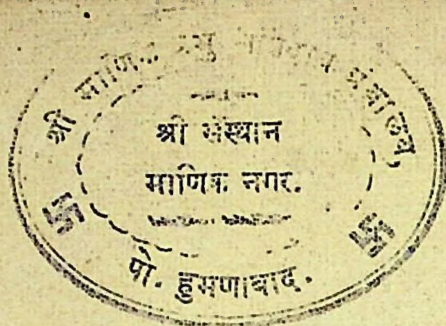 श्री माणिक प्रभु ग्रंथालय,
श्री संस्थान
माणिक नगर.
पो. हुमणाबाद.